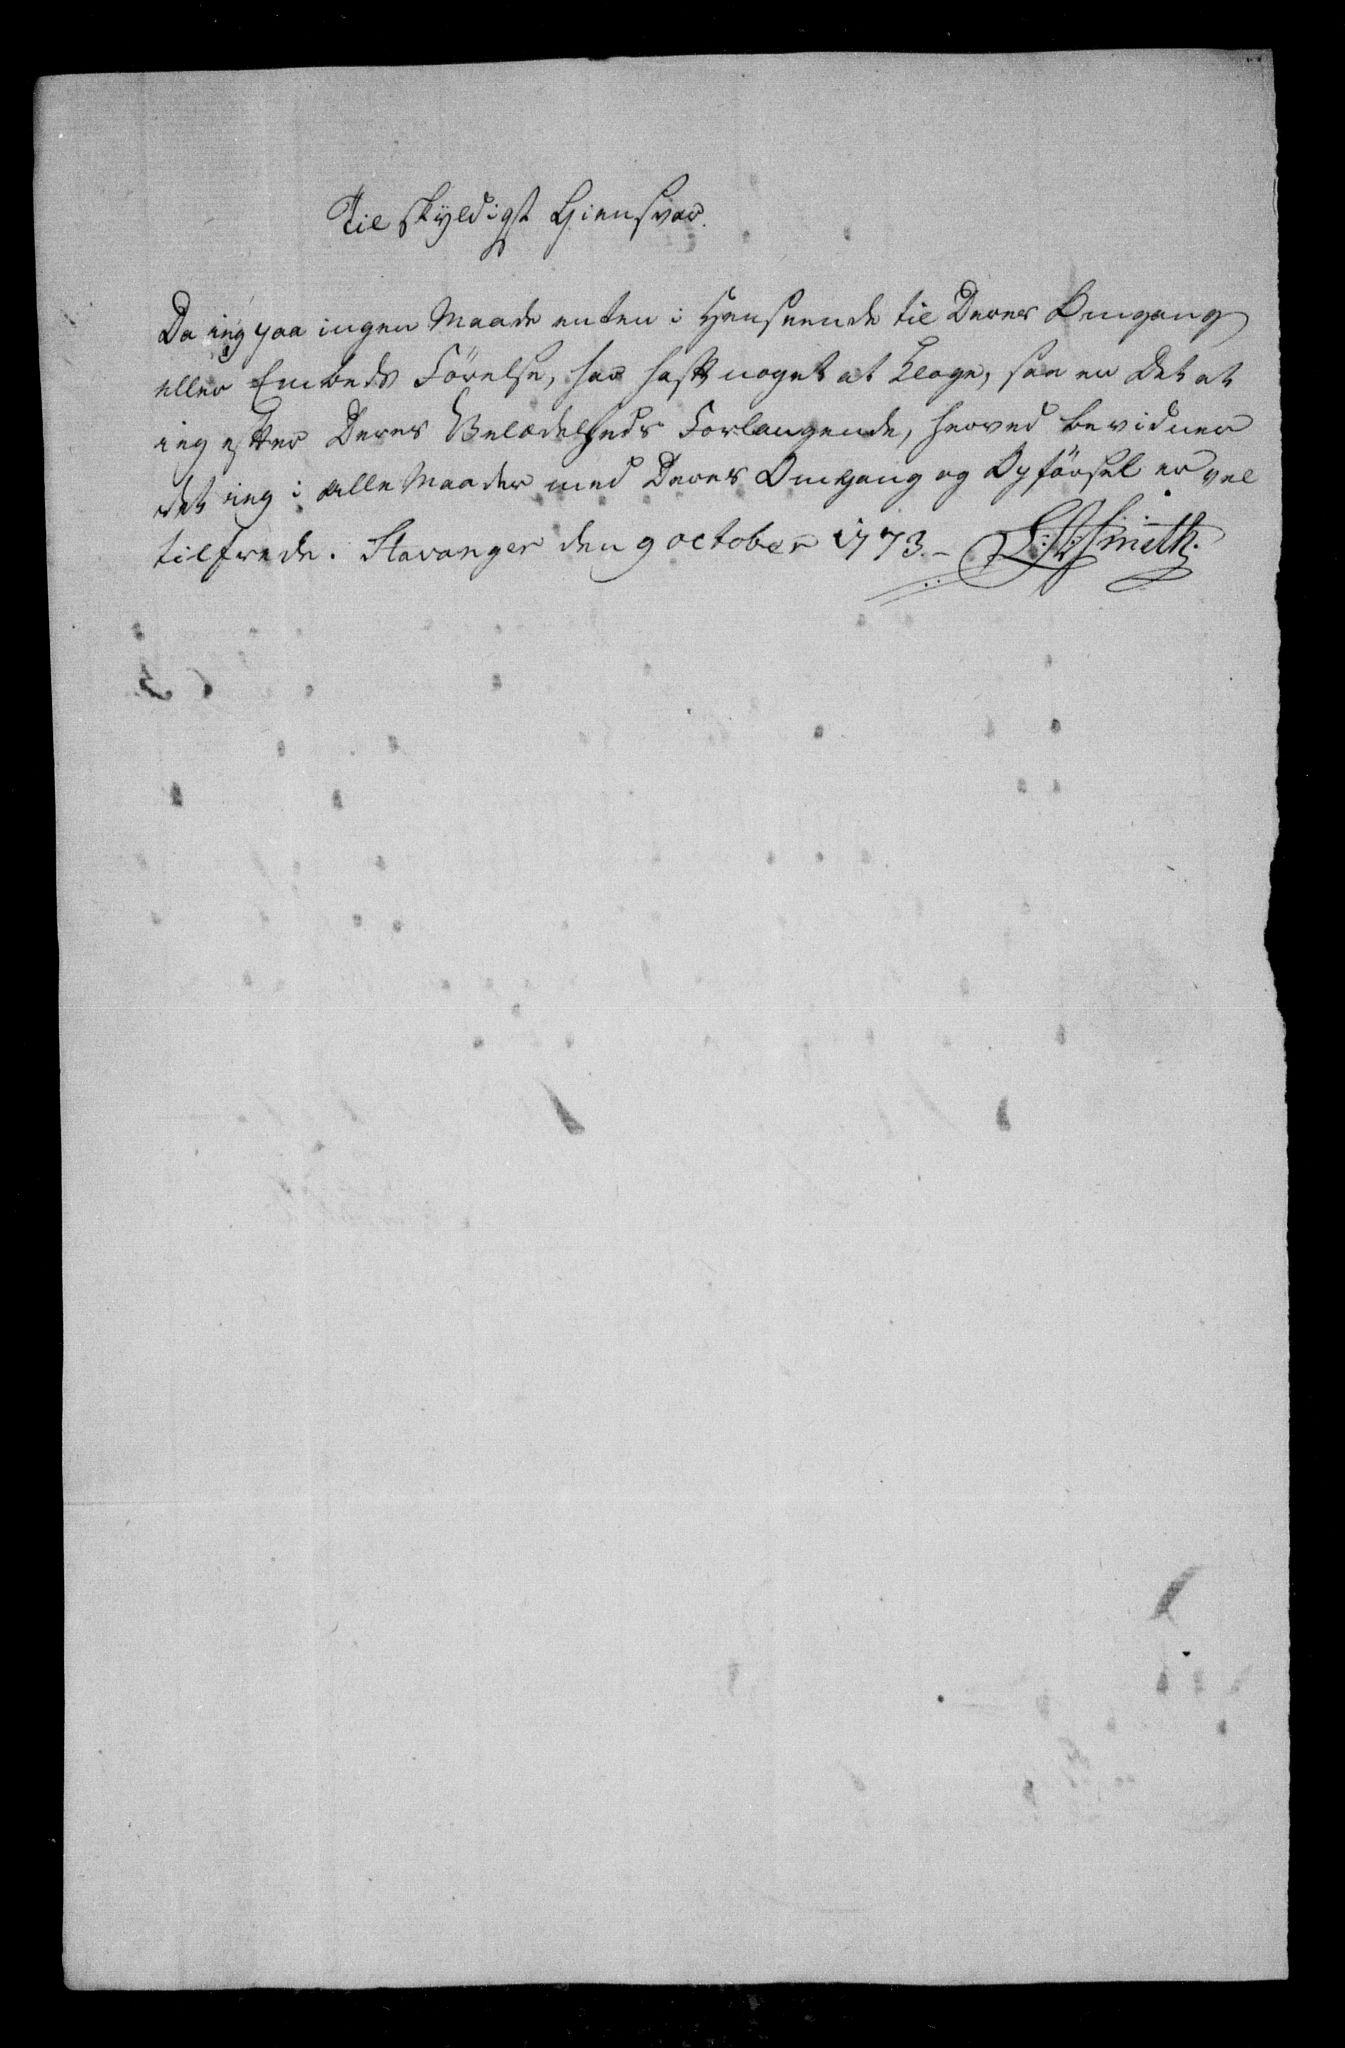 Til skyldigst Giensvar.
Da ieg paa ingen Maade enten i Henseende til Deres Omgang
eller Embeds Förelse, har haft noget at Klage, saa er det at
ieg efter Deres Velædelheds Forlangende, herved bevidner
det ieg i alle Maader med Deres Omgang og Opförsel er vel
tilfrede. Stavanger den 9 october 1773. Smith.